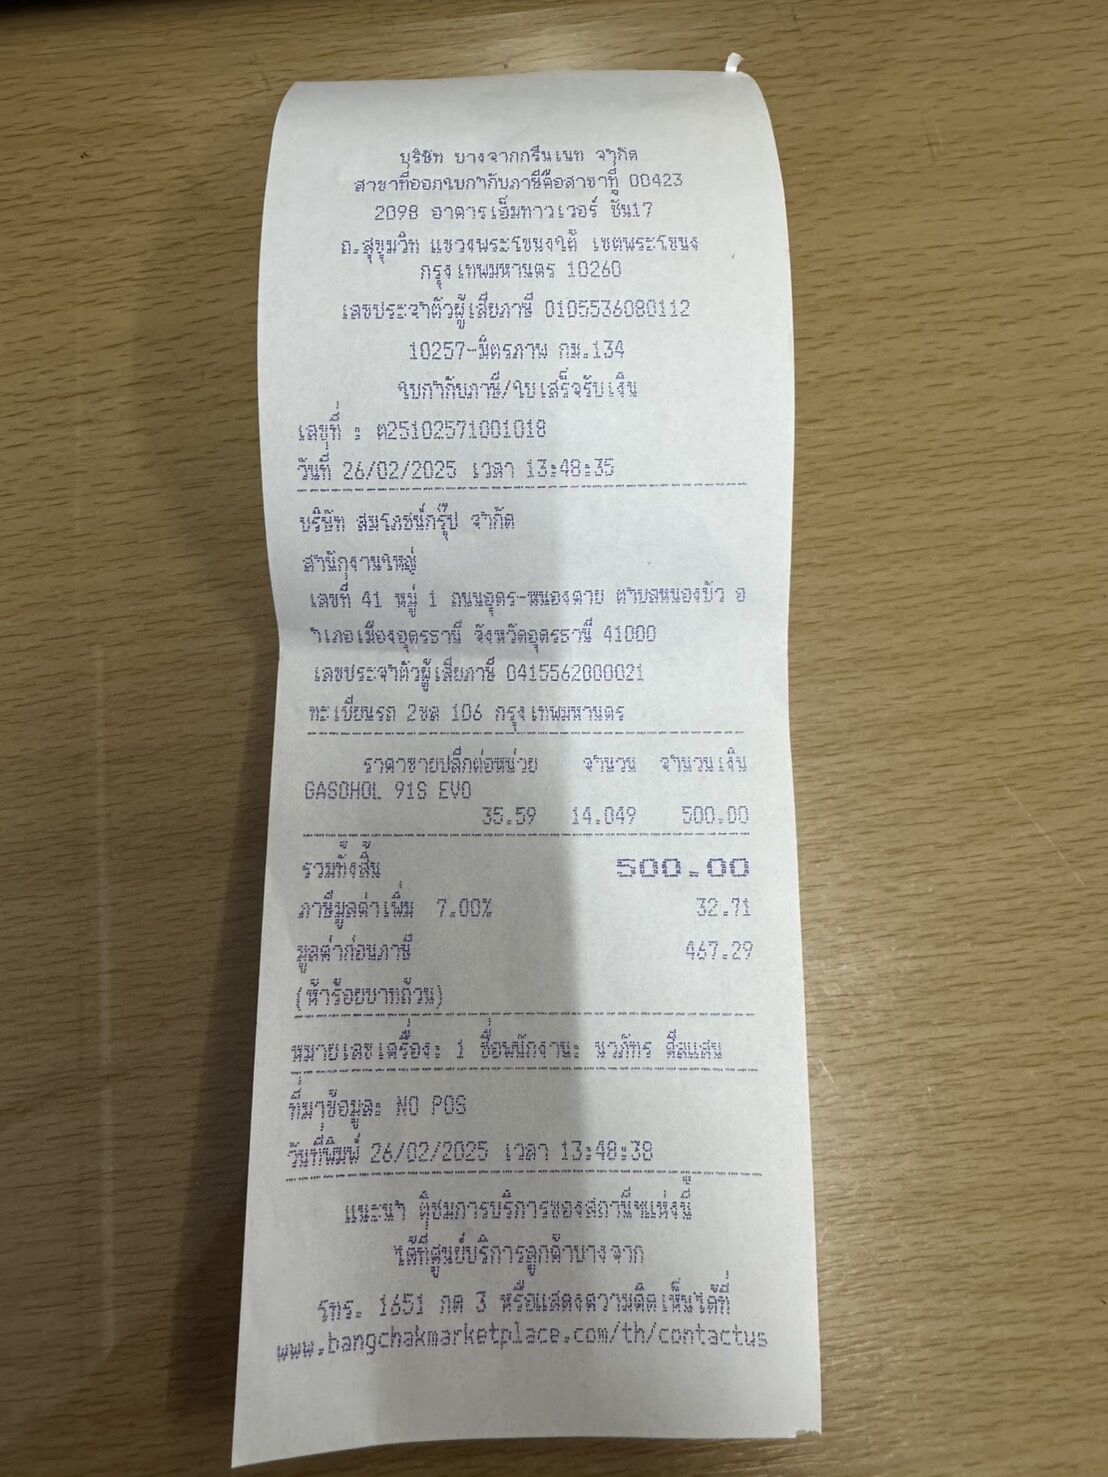 บริษัท บางจากกรีนเนท จำกัด
สาขาที่ออกใบกำกับภาษีคือสาขาที่ 00423
2098 อาคารเอ็มทาวเวอร์ ชั้น17
ถ.สุขุมวิท แขวงพระโขนงใต้ เขตพระโขนง
กรุงเทพมหานคร 10260
เลขประจำตัวผู้เสียภาษี 0105536080112
10257-มิตรภาพ กม.134
ใบกำกับภาษี/ใบเสร็จรับเงิน
เลขที่ : ต25102571001018
วันที่ 26/02/2025 เวลา 13:48:35
บริษัท สมโภชน์กรุ๊ป จำกัด
สำนักงานใหญ่
เลขที่ 41 หมู่ 1 ถนนอุดร-หนองคาย ตำบลหนองบัว อ
ำเภอเมืองอุดรธานี จังหวัดอุดรธานี 41000
เลขประจำตัวผู้เสียภาษี 0415562000021
ทะเบียนรถ 2ขล 106 กรุงเทพมหานคร
ราคาขายปลีกต่อหน่วย จำนวน จำนวนเงิน
GASOHOL 91S EVO
35.59 14.049 500.00
รวมทั้งสิ้น 500.00
ภาษีมูลค่าเพิ่ม 7.00% 32.71
มูลค่าก่อนภาษี 467.29
(ห้าร้อยบาทถ้วน)
หมายเลขเครื่อง: 1 ชื่อพนักงาน: นวภัทร ศีลแสน
ที่มาข้อมูล: NO POS
วันที่พิมพ์ 26/02/2025 เวลา 13:48:38
แนะนำ ติชมการบริการของสถานีฯแห่งนี้
ได้ที่ศูนย์บริการลูกค้าบางจาก
โทร. 1651 กด 3 หรือแสดงความคิดเห็นได้ที่
www.bangchakmarketplace.com/th/contactus